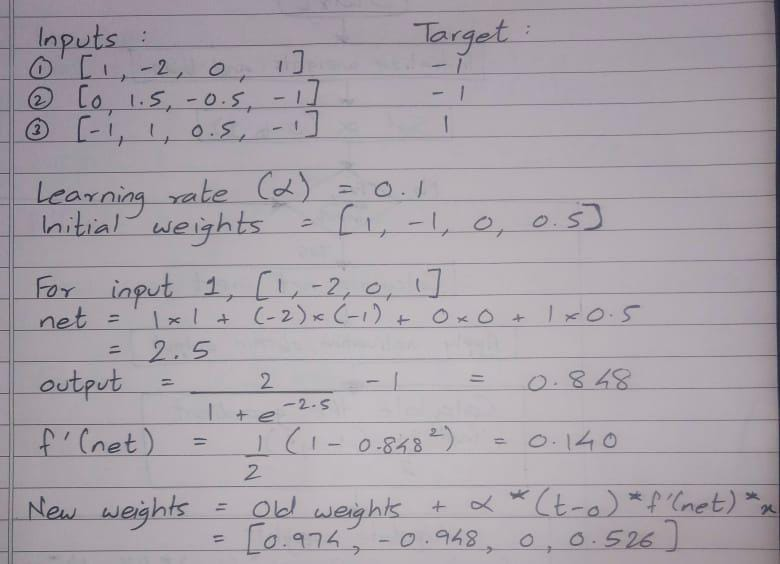 Inputs : Target :
① [1, -2, 0, 1] -1
② [0, 1.5, -0.5, -1] -1
③ [-1, 1, 0.5, -1] 1
Learning rate (α) = 0.1
Initial weights = [1, -1, 0, 0.5]
For input 1, [1, -2, 0, 1]
net = 1×1 + (-2)×(-1) + 0×0 + 1×0.5
= 2.5
output = 2 / (1 + e^-2.5) - 1 = 0.848
f'(net) = 1/2 (1 - 0.848²) = 0.140
New weights = Old weights + α * (t-o) * f'(net) * x
= [0.974, -0.948, 0, 0.526]